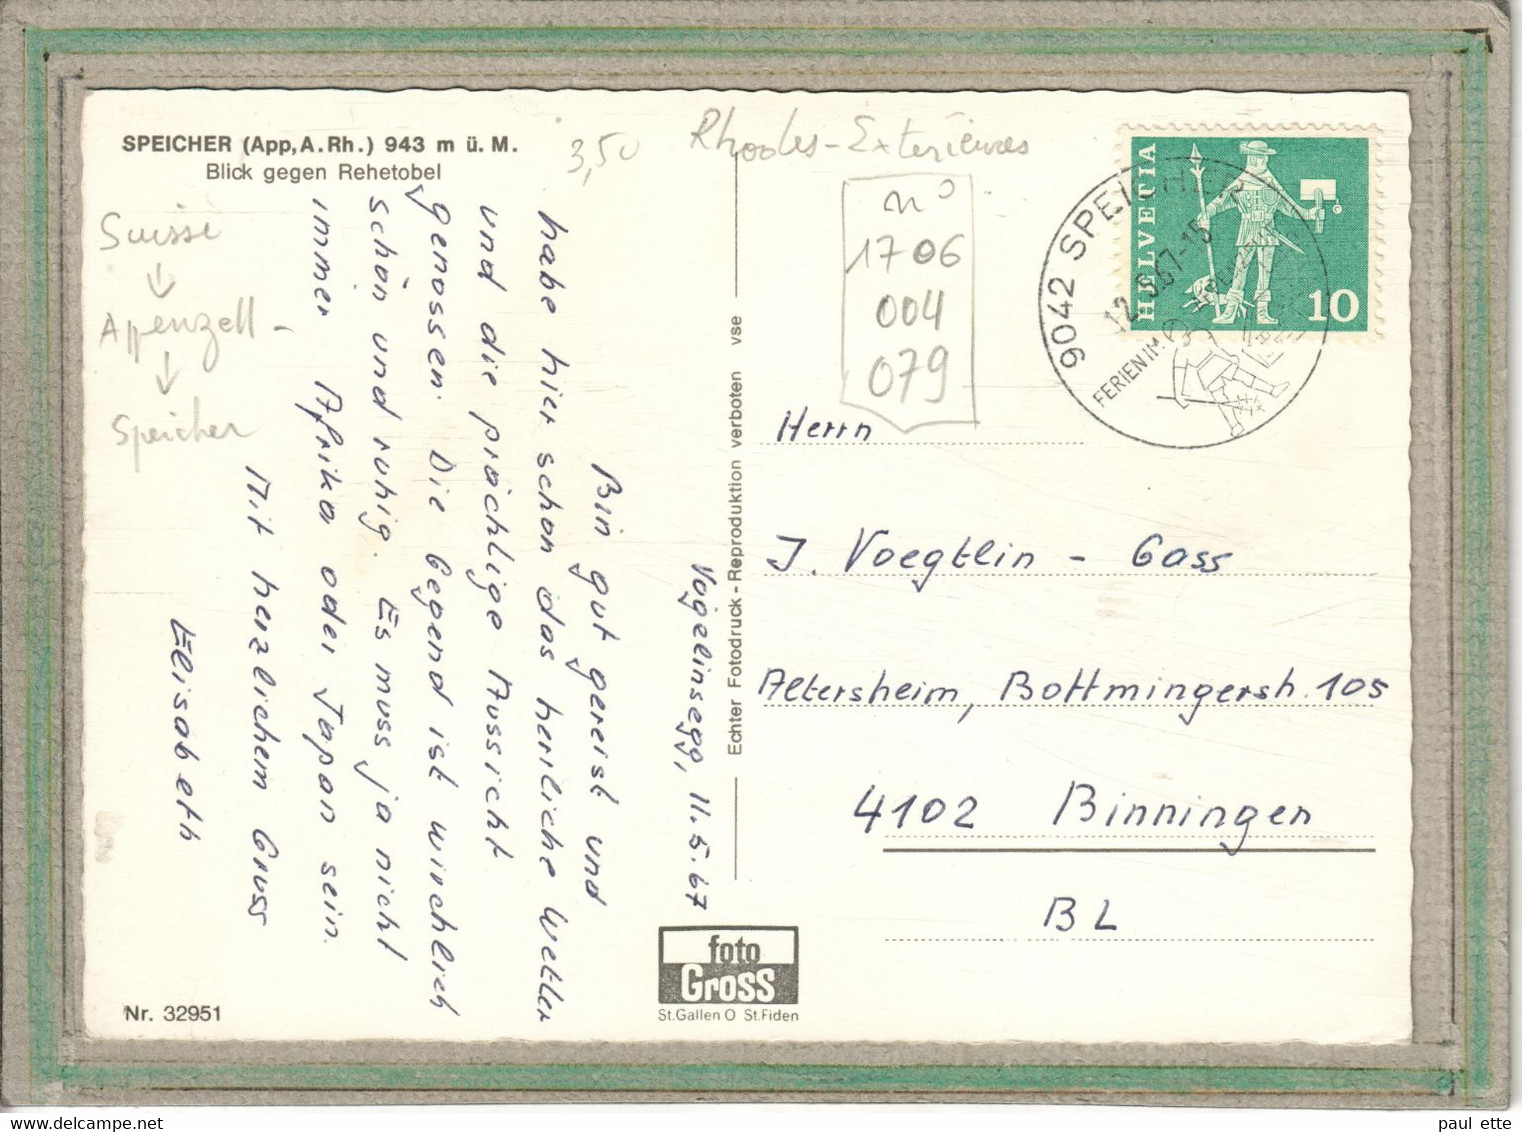 SPEICHER (App, A. Rh.) 943 m ü. M.
Blick gegen Rehetobel
3,50
Rhodes-Extérieures
Suisse
Appenzell -
Speicher
n°
1706
004
079
HELVETIA
10
9042 SPEICHER
12.-5.67-15
FERIEN IM
Vögelinsegg, 11.5.67
Bin gut gereist und
habe hier schon das herrliche Wetter
und die prächtige Aussicht
genossen. Die Gegend ist wirchlich
schön und ruhig. Es muss ja nicht
immer Afrika oder Japan sein.
Mit herzlichem Gruss
Elisabeth
Echter Fotodruck - Reproduktion verboten vse
Herrn
J. Voegtlin - Gass
Altersheim, Bottmingerstr. 105
4102 Binningen
BL
foto
Gross
St.Gallen O St.Fiden
Nr. 32951
paul ette